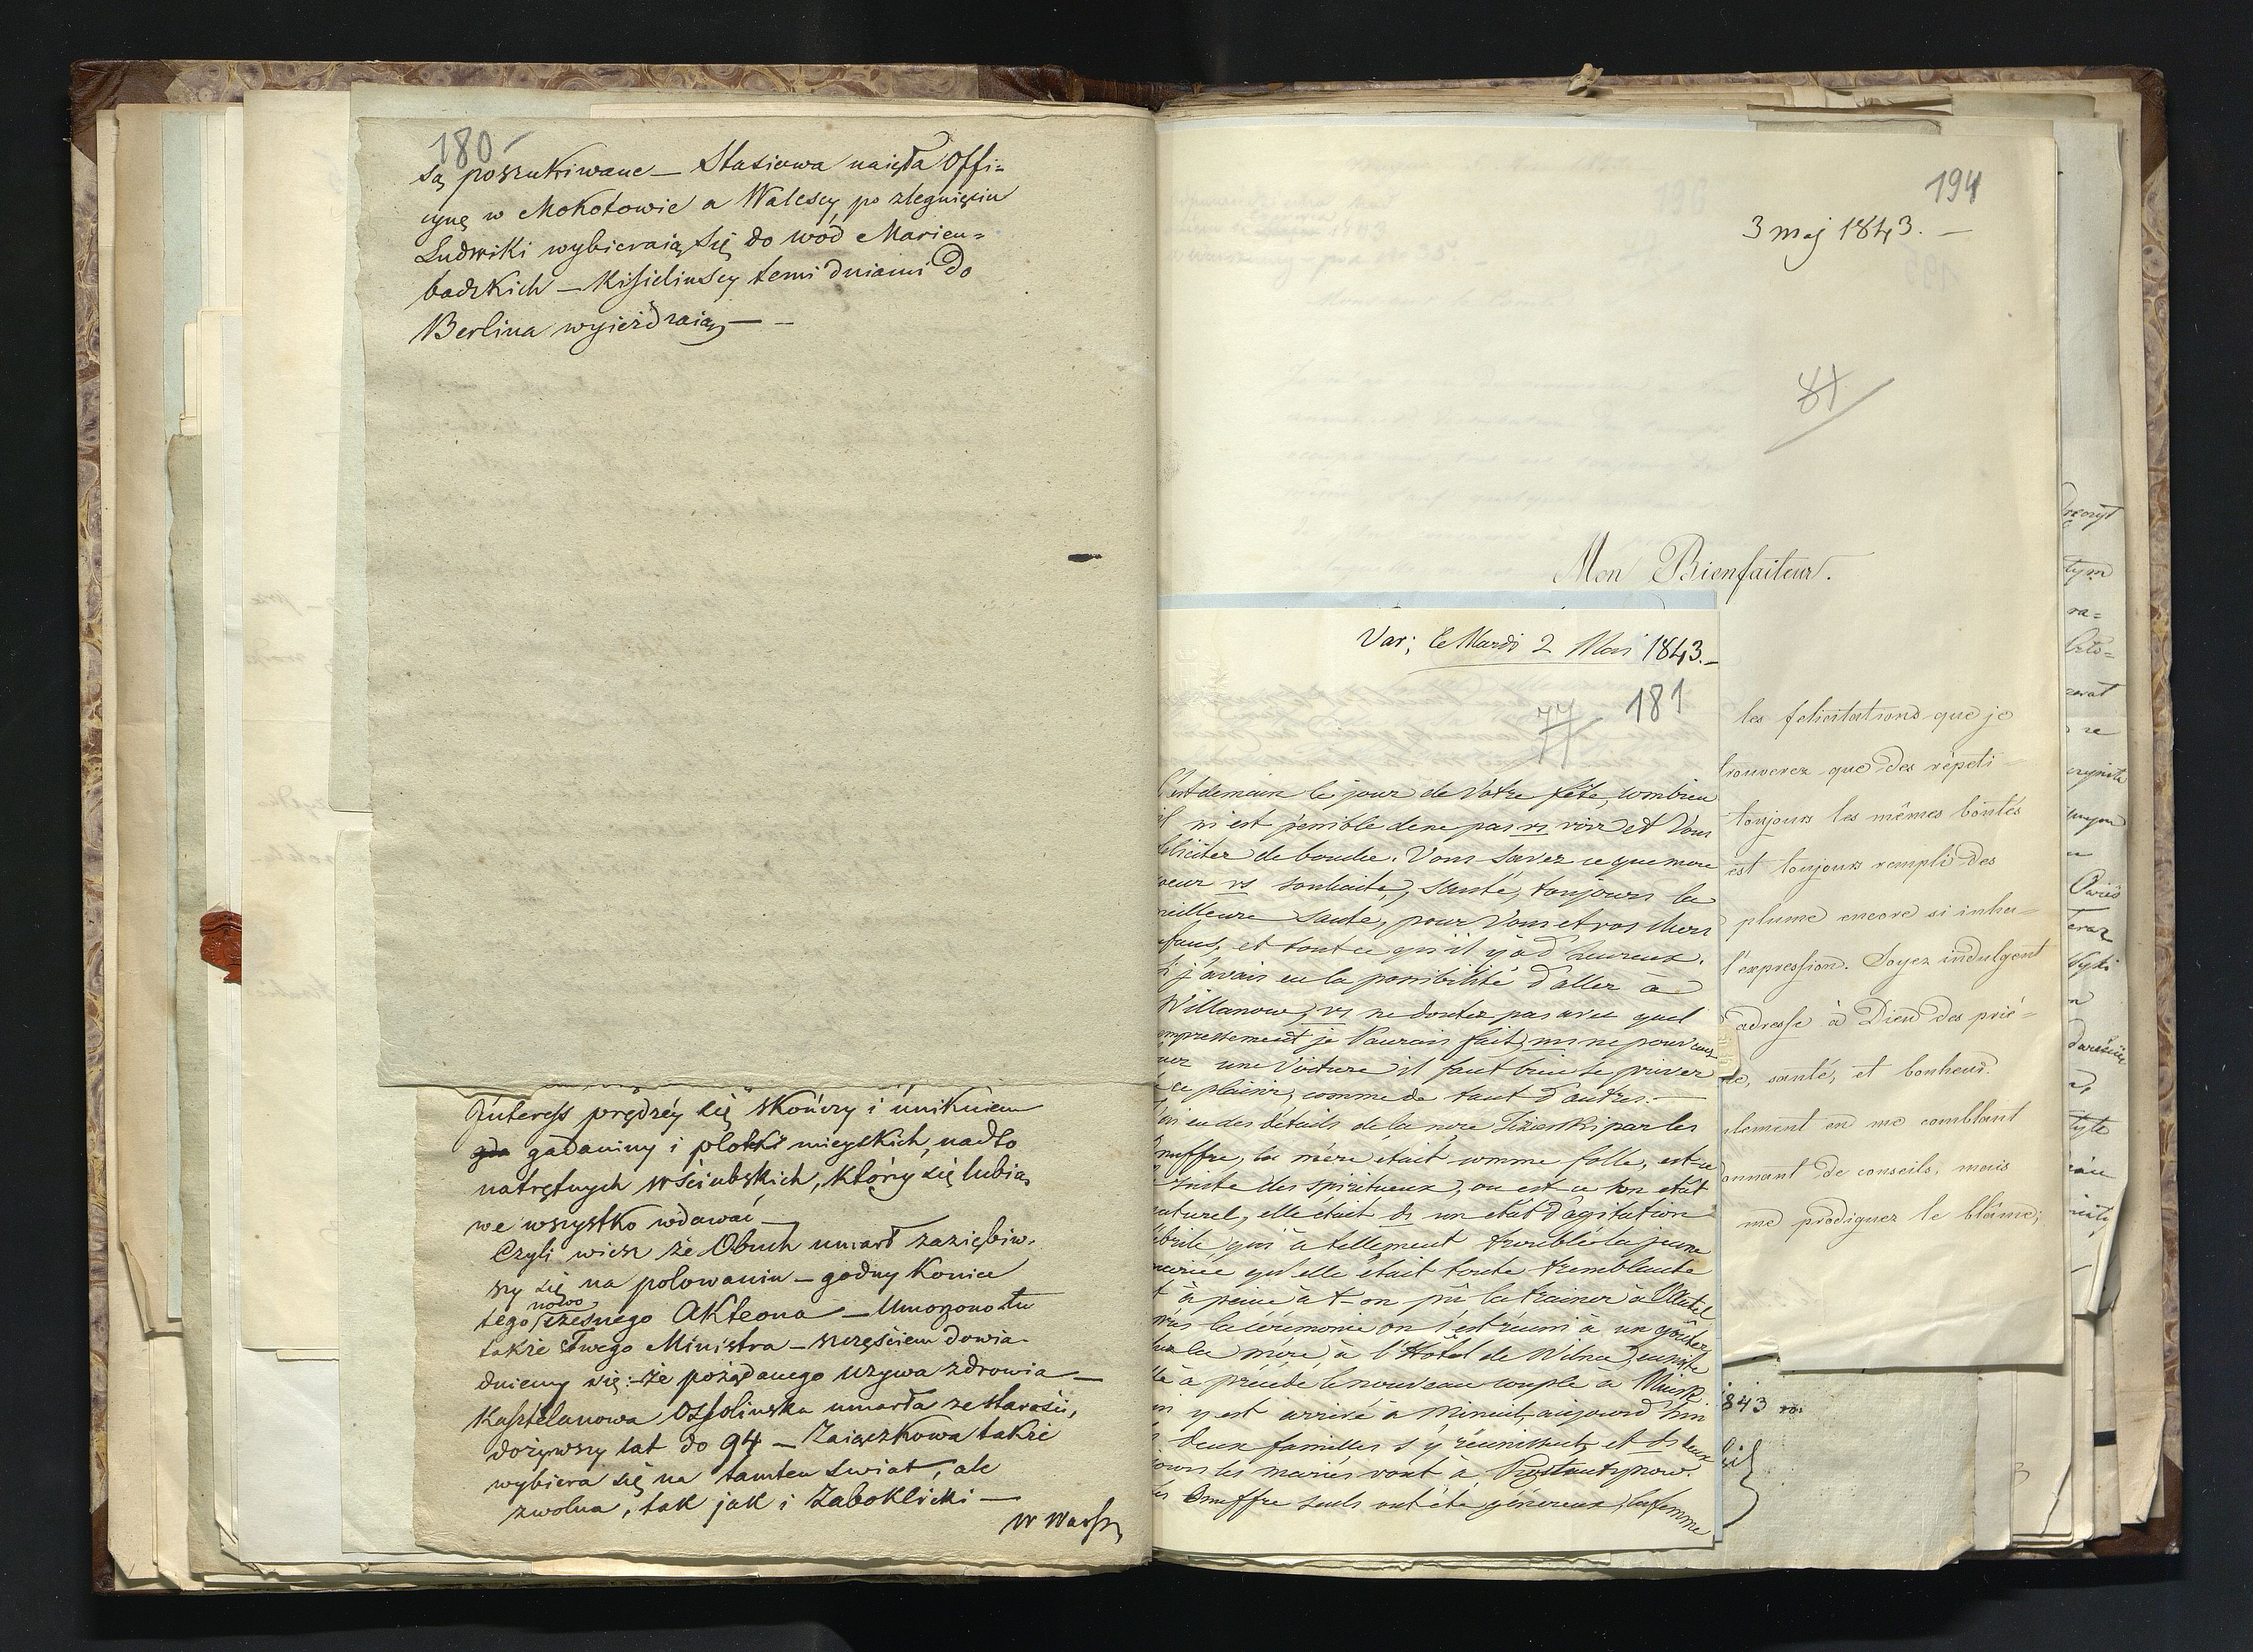 180
są poszukiwane — Stasiowa naięła Offi=
cynę w Mokotowie a Walescy po zlegnięciu
Ludwiki wybieraią się do wód Marien=
badzkich — Kisielinscy temi dniami do
Berlina wyieżdzaią —
Interess prędzéy się skończy i únikniem
gadaniny i plotki mieyskich, nadto
natrętnych wścinbskich, którzy się lubią
we wszystko wdawać —
Czyli wiesz że Obuch umarł zaziębiw-
szy się na polowaniu — godny koniec
tego nowo czesnego Akteona — Umorzono tu
także Twego Ministra — szczęściem dowia-
dniemy się: że pożądanego używa zdrowia —
Kasztelanowa Ossolinska umarła ze starości,
dożywszy lat do 94 — Zaiączkowa także
wybiera się na tamten świat, ale
zwolna, tak jak i Zaboklicki —
W Warsz
194
3 maj 1843. —
81
Mon Bienfaiteur.
les felicitations que je
trouverez que des répéti-
toujours les mêmes bontés
est toujours rempli des
plume encore si inha=
l'expression. Soyez indulgent
adresse à Dieu des priè=
santé, et bonheur.
en me comblant
de conseils, mais
me prodiguez le blâme;
Var; le Mardi 2 Mai 1843. —
181
77
C'est demain le jour de Votre fête, combien
il m'est pénible de ne pas vs voir et Vous
féliciter de bouche. Vous savez ce que mon
coeur vs souhaite, santé, toujours la
meilleure santé, pour Vous et vos chers
enfans, et tout ce qu'il y a d'heureux.
Si j'avais eu la possibilité d'aller à
Willanow, vs ne doutez pas avec quel
empressement je l'aurais fait, ms ne pouvant
une Voiture il faut bien se priver
de ce plaisir, comme de tant d'autres. —
J'ai eu des détails de la noce par les
Ouuffre, la mère était comme folle, est-ce
suite des spiritueux, ou est-ce son état
naturel, elle était ds un état d'agitation
fébrile qui a tellement troublé la jeune
mariée qu'elle était toute tremblante
et à peine a-t-on pû la trainer à l'Autel
après la cérémonie on s'est réuni à un goûter
chez la mère à l'Hôtel de Wilna, ensuite
elle a précédé le nouveau couple à Minsk
on y est arrivé à minuit, aujourd'hui
les deux familles s'y réunissent et ds deux
jours les mariés vont à
les Ouuffre seuls ont été généreux, la femme
1843 ro: